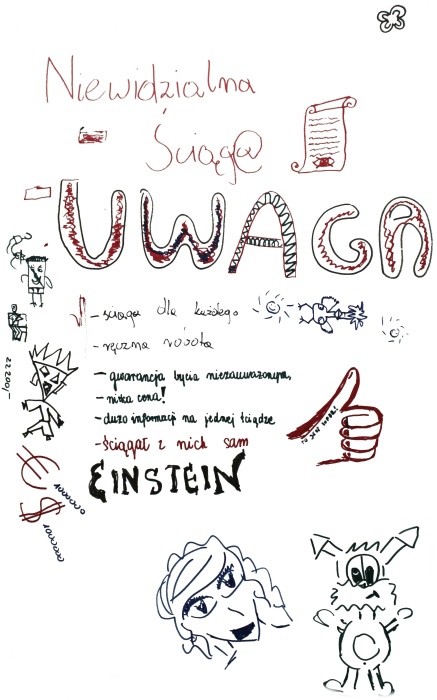 Niewidzialna
Ściąg@
UWAGA
- ściąga dla każdego
- ręczna robota
- gwarancja bycia niezauważonym,
- niska cena!
- dużo informacji na jednej ściądze
- ściągał z nich sam
EINSTEIN
€
$
C